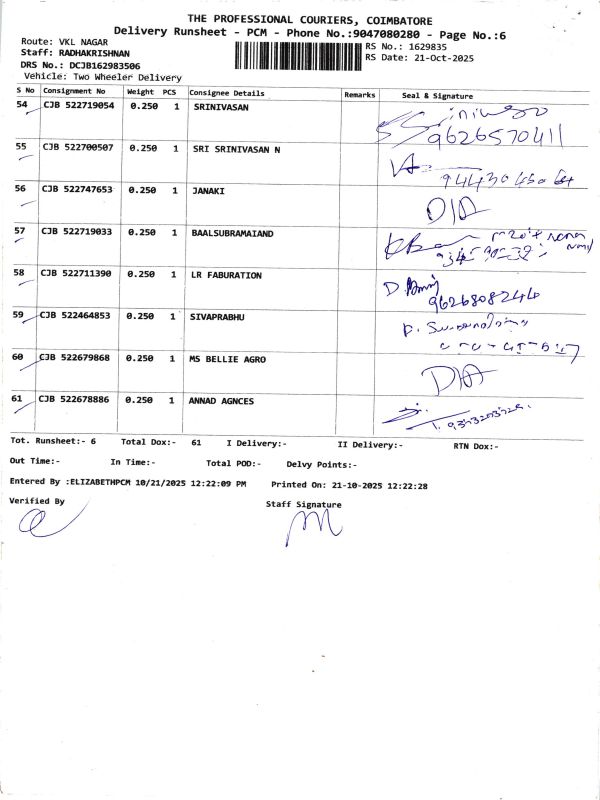 THE PROFESSIONAL COURIERS, COIMBATORE
Delivery Runsheet - PCM - Phone No.:9047080280 - Page No.:6
Route: VKL NAGAR
RS No.: 1629835
Staff: RADHAKRISHNAN
RS Date: 21-Oct-2025
DRS No.: DCJB162983506
Vehicle: Two Wheeler Delivery
S No Consignment No Weight PCS Consignee Details Remarks Seal & Signature
54 CJB 522719054 0.250 1 SRINIVASAN
9626570411
55 CJB 522700507 0.250 1 SRI SRINIVASAN N
56 CJB 522747653 0.250 1 JANAKI
57 CJB 522719033 0.250 1 BAALSUBRAMAIAND
58 CJB 522711390 0.250 1 LR FABURATION
9626808246
59 CJB 522464853 0.250 1 SIVAPRABHU
60 CJB 522679868 0.250 1 MS BELLIE AGRO
61 CJB 522678886 0.250 1 ANNAD AGNCES
Tot. Runsheet:- 6 Total Dox:- 61 I Delivery:- II Delivery:- RTN Dox:-
Out Time:- In Time:- Total POD:- Delvy Points:-
Entered By :ELIZABETHPCM 10/21/2025 12:22:09 PM Printed On: 21-10-2025 12:22:28
Verified By Staff Signature